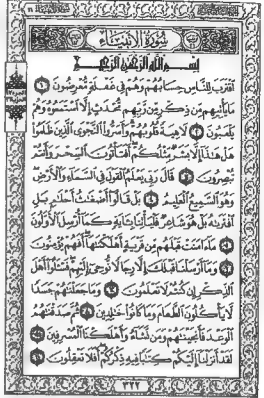 سورة الأنبياء
بسم الله الرحمن الرحيم
اقترب للناس حسابهم وهم في غفلة معرضون ١
ما يأتيهم من ذكر من ربهم محدث إلا استمعوه وهم
يلعبون ٢ لاهية قلوبهم وأسروا النجوى الذين ظلموا
هل هذا إلا بشر مثلكم أفتأتون السحر وأنتم
تبصرون ٣ قال ربي يعلم القول في السماء والأرض
وهو السميع العليم ٤ بل قالوا أضغاث أحلام بل
افتراه بل هو شاعر فليأتنا بآية كما أرسل الأولون
٥ ما آمنت قبلهم من قرية أهلكناها أفهم يؤمنون
٦ وما أرسلنا قبلك إلا رجالا نوحي إليهم فسئلوا أهل
الذكر إن كنتم لا تعلمون ٧ وما جعلناهم جسدا
لا يأكلون الطعام وما كانوا خالدين ٨ ثم صدقناهم
الوعد فأنجيناهم ومن نشاء وأهلكنا المسرفين ٩
لقد أنزلنا إليكم كتابا فيه ذكركم أفلا تعقلون ١٠
٣٢٢